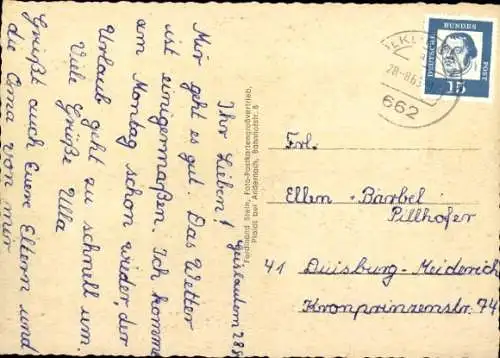 Geislautern 28.8
Ihr Lieben!
Mir geht es gut. Das Wetter
ist einigermaßen. Ich komme
am Montag schon wieder, der
Urlaub geht zu schnell um.
Viele Grüße Ulla
Grüßt auch Euere Eltern und
die Oma von mir
Ferdinand Stein, Foto-Postkartengroßvertrieb,
Plaidt bei Andernach, Bahnhofstr. 8
28.-8.63
662
DEUTSCHE BUNDES POST
15
Frl.
Ellen - Bärbel
Pillhofer
41 Duisburg-Meiderich
Kronprinzenstr. 74